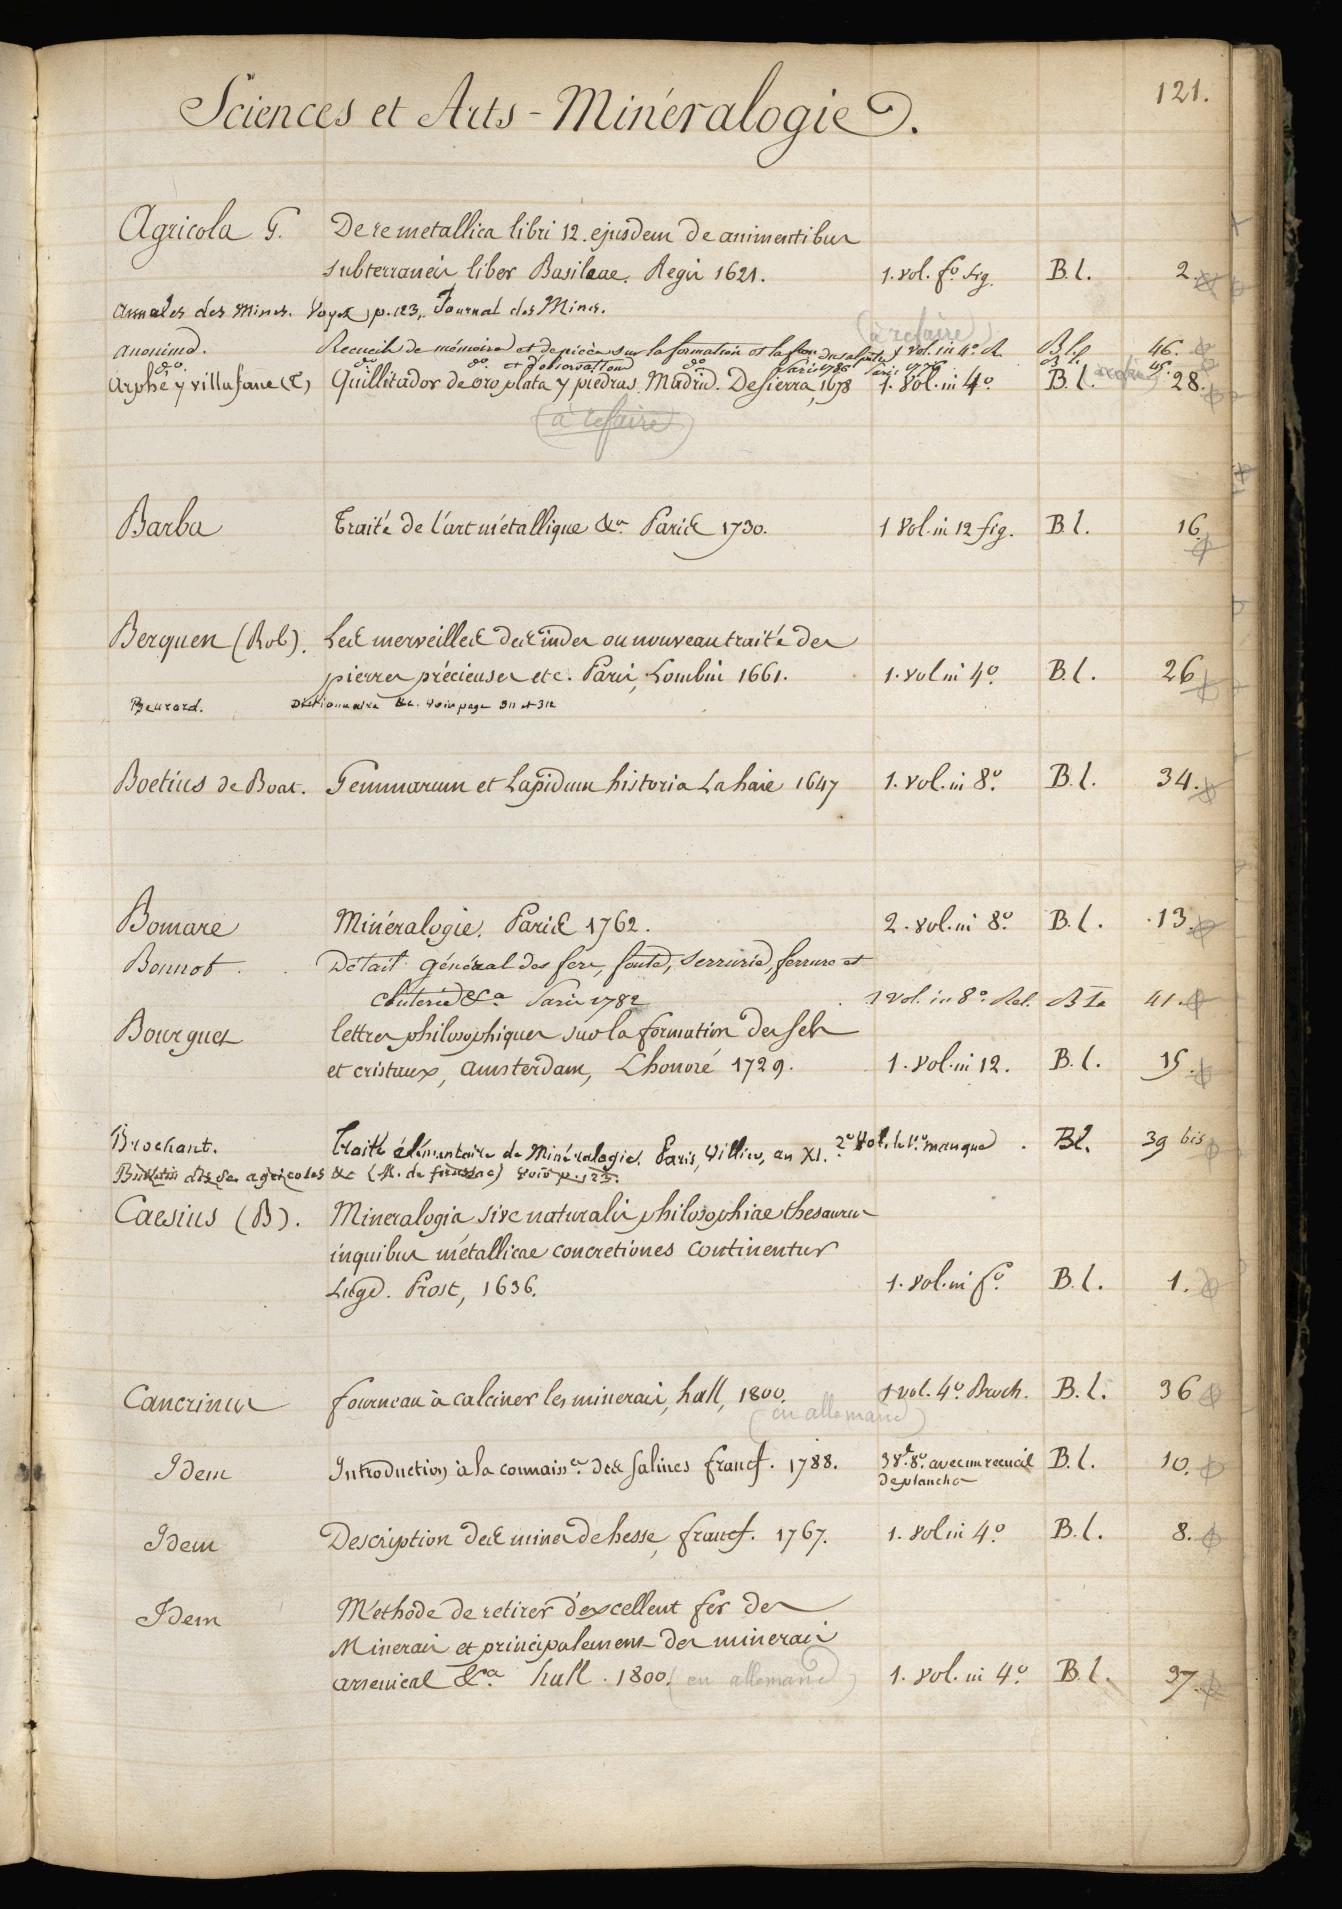 121.
Sciences et Arts - Minéralogie.
Agricola G. De re metallica libri 12. ejusdem de animentibus
subterraneis liber Basileae. Regis 1621. 1. vol. fo. fig. B. l. 2.
Annales des Mines. Voyez p. 123, Journal des Mines.
(à refaire)
Anonime. Recueil de mémoires et de pièces sur la formation et la fon du salpêtre 1 vol. in 4o. R. B. l. 46.
do. do. et d'observations do Paris 1786 Paris 1776 B. l. 45.
Arphe y villafane (C) Quillitador de oro plata y piedras. Madrid. De sierra, 1678 1. vol. in 4o. B. l. 28.
(à refaire)
Barba Traité de l'art métallique &a. Paris 1730. 1 vol. in 12 fig. B. l. 16.
Berquen (Rob). Les merveilles des indes ou nouveau traité des
pierres précieuses etc. Paris, Lambin 1661. 1. vol in 4o. B. l. 26
Beurard. Dictionnaire &c. Voir page 311 et 312
Boetius de Boat. Gemmarum et Lapidum historia La haie 1647 1. vol. in 8o. B. l. 34.
Bomare Minéralogie. Paris 1762. 2. vol. in 8o. B. l. 13.
Bonnot. Détail général des fers, fonte, serrurie, ferrure et
clouterie &ca Paris 1782 1 vol. in 8o. Rel. B La 41.
Bourguet lettres philosophiques sur la formation des sels
et cristaux, Amsterdam, Lhonoré 1729. 1. vol. in 12. B. l. 15.
Brochant. Traité élémentaire de Minéralogie. Paris, Villier, an XI. 2o Vol. le 1er. manque. Bl. 39 bis
Bulletin des Sces agricoles &c (M. de férussac) voir p. 125.
Caesius (B). Mineralogia sive naturalis philosophiae thesaurus
in quibus métallicae concretiones continentur
Lugd. Prost, 1636. 1. vol. in fo. B. l. 1.
Cancrinus fourneau à calciner les minerais, hall, 1800. 1 vol. 4o. Broch. B. l. 36
(en allemand)
Idem Introduction à la connaisce. des salines francf. 1788. 3 vt. 8o. avec un recueil B. l. 10.
de planches
Idem Description des mines de hesse, francf. 1767. 1. vol in 4o. B. l. 8.
Idem Méthode de retirer d'excellent fer des
Minerais et principalement des minerais
arsenical &ca. hall. 1800. (en allemand) 1. vol. in 4o. B. l. 37.